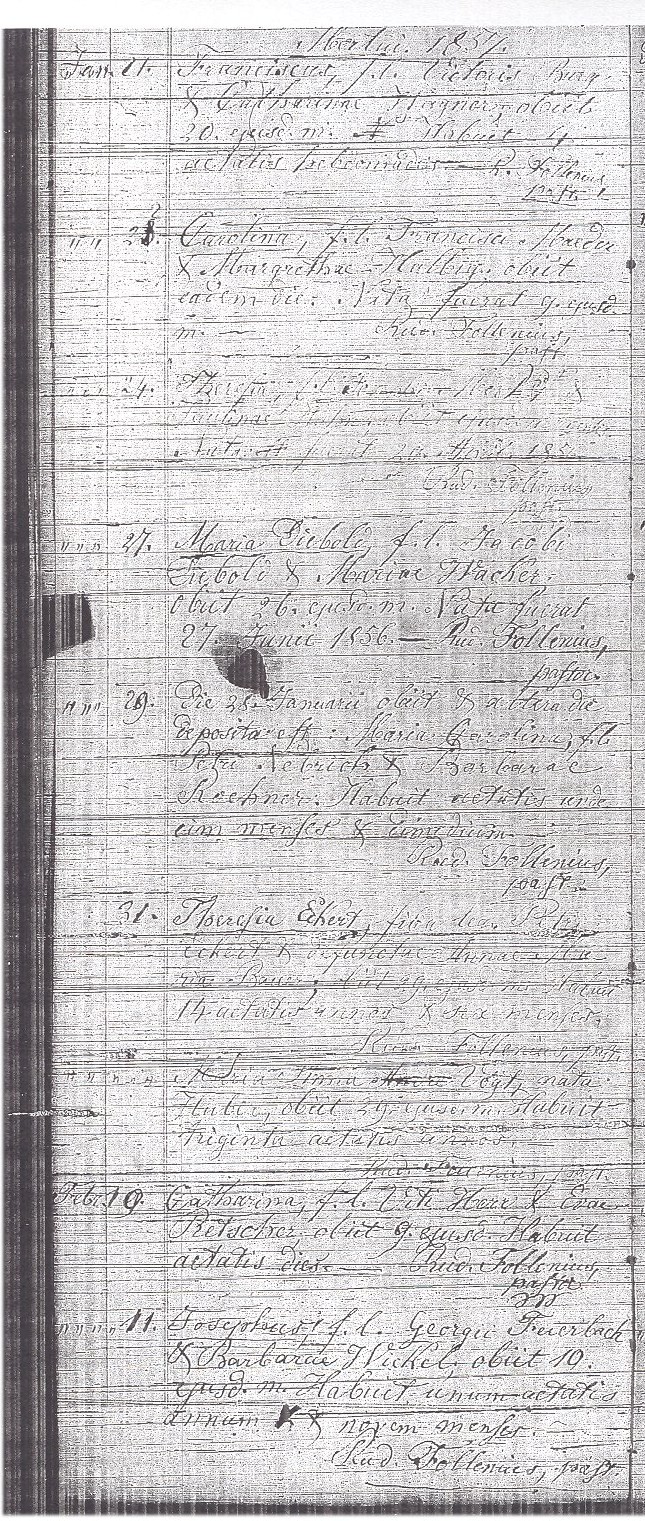 Mortui. 1857.
Jan. 21. Franciscus, f. l. Victoris
& Catharinae Wagner, obiit
20. ejusd. m. Habuit 4
aetatis hebdomadas — R. Follenius,
past.
" " 28. Carolina, f. l. Francisci Maeder
& Margrethae Halbig. obiit
eadem die. Nata fuerat 9. ejusd.
m. — Rud. Follenius,
past.
" " 24. Theresia, f. l.
Paulinae obiit ejusd.
fuerat 20. April. 185
Rud. Follenius,
past.
" " " 27. Maria Diebold, f. l. Jacobi
Diebold & Mariae Wacher.
obiit 26. ejusd. m. Nata fuerat
27. Junii 1856. — Rud. Follenius,
pastor.
" " " 29. Die 28. Januarii obiit & altera die
deposita est: Maria Carolina, f. l.
Petri Nebrich & Barbarae
Kochner. Habuit aetatis unde
cim menses & dimidium. —
Rud. Follenius,
past.
31. Theresia Eckert, filia
Eckert & defunctae Annae Ma
riae Bauer, obiit 29. ejusd. m. Habuit
14 aetatis annos & sex menses.
Follenius, past.
" " " " Maria Anna Vogt, nata
Huber, obiit 29. ejusd. m. Habuit
triginta aetatis annos.
Rud. Follenius, past.
Febr. 10. Catharina, f. l. Viti Herr & Evae
Retscher, obiit 9. ejusd. Habuit
aetatis dies. — Rud. Follenius,
pastor
" " " " 11. Josephus, f. l. Georgii Feuerbach
& Barbarae Nickel, obiit 10.
ejusd. m. Habuit unum aetatis
annum & novem menses. —
Rud. Follenius, past.